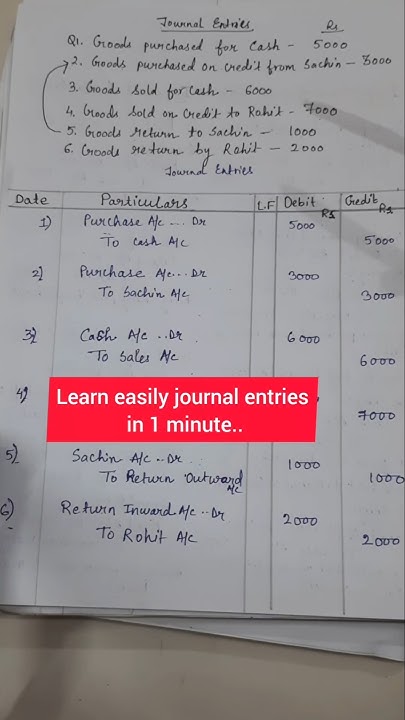 Journal Entries Rs
Q1. Goods purchased for Cash - 5000
2. Goods purchased on credit from Sachin - 3000
3. Goods Sold for Cash - 6000
4. Goods Sold on Credit to Rohit - 7000
5. Goods return to Sachin - 1000
6. Goods return by Rohit - 2000
Journal Entries
Date Particulars L.F Debit Rs Credit Rs
1) Purchase A/c ... Dr 5000
To Cash A/c 5000
2) Purchase A/c... Dr 3000
To Sachin A/c 3000
3) Cash A/c ..Dr 6000
To Sales A/c 6000
4)
Learn easily journal entries
in 1 minute..
7000
5) Sachin A/c ..Dr 1000
To Return Outward A/c 1000
6) Return Inward A/c ..Dr 2000
To Rohit A/c 2000